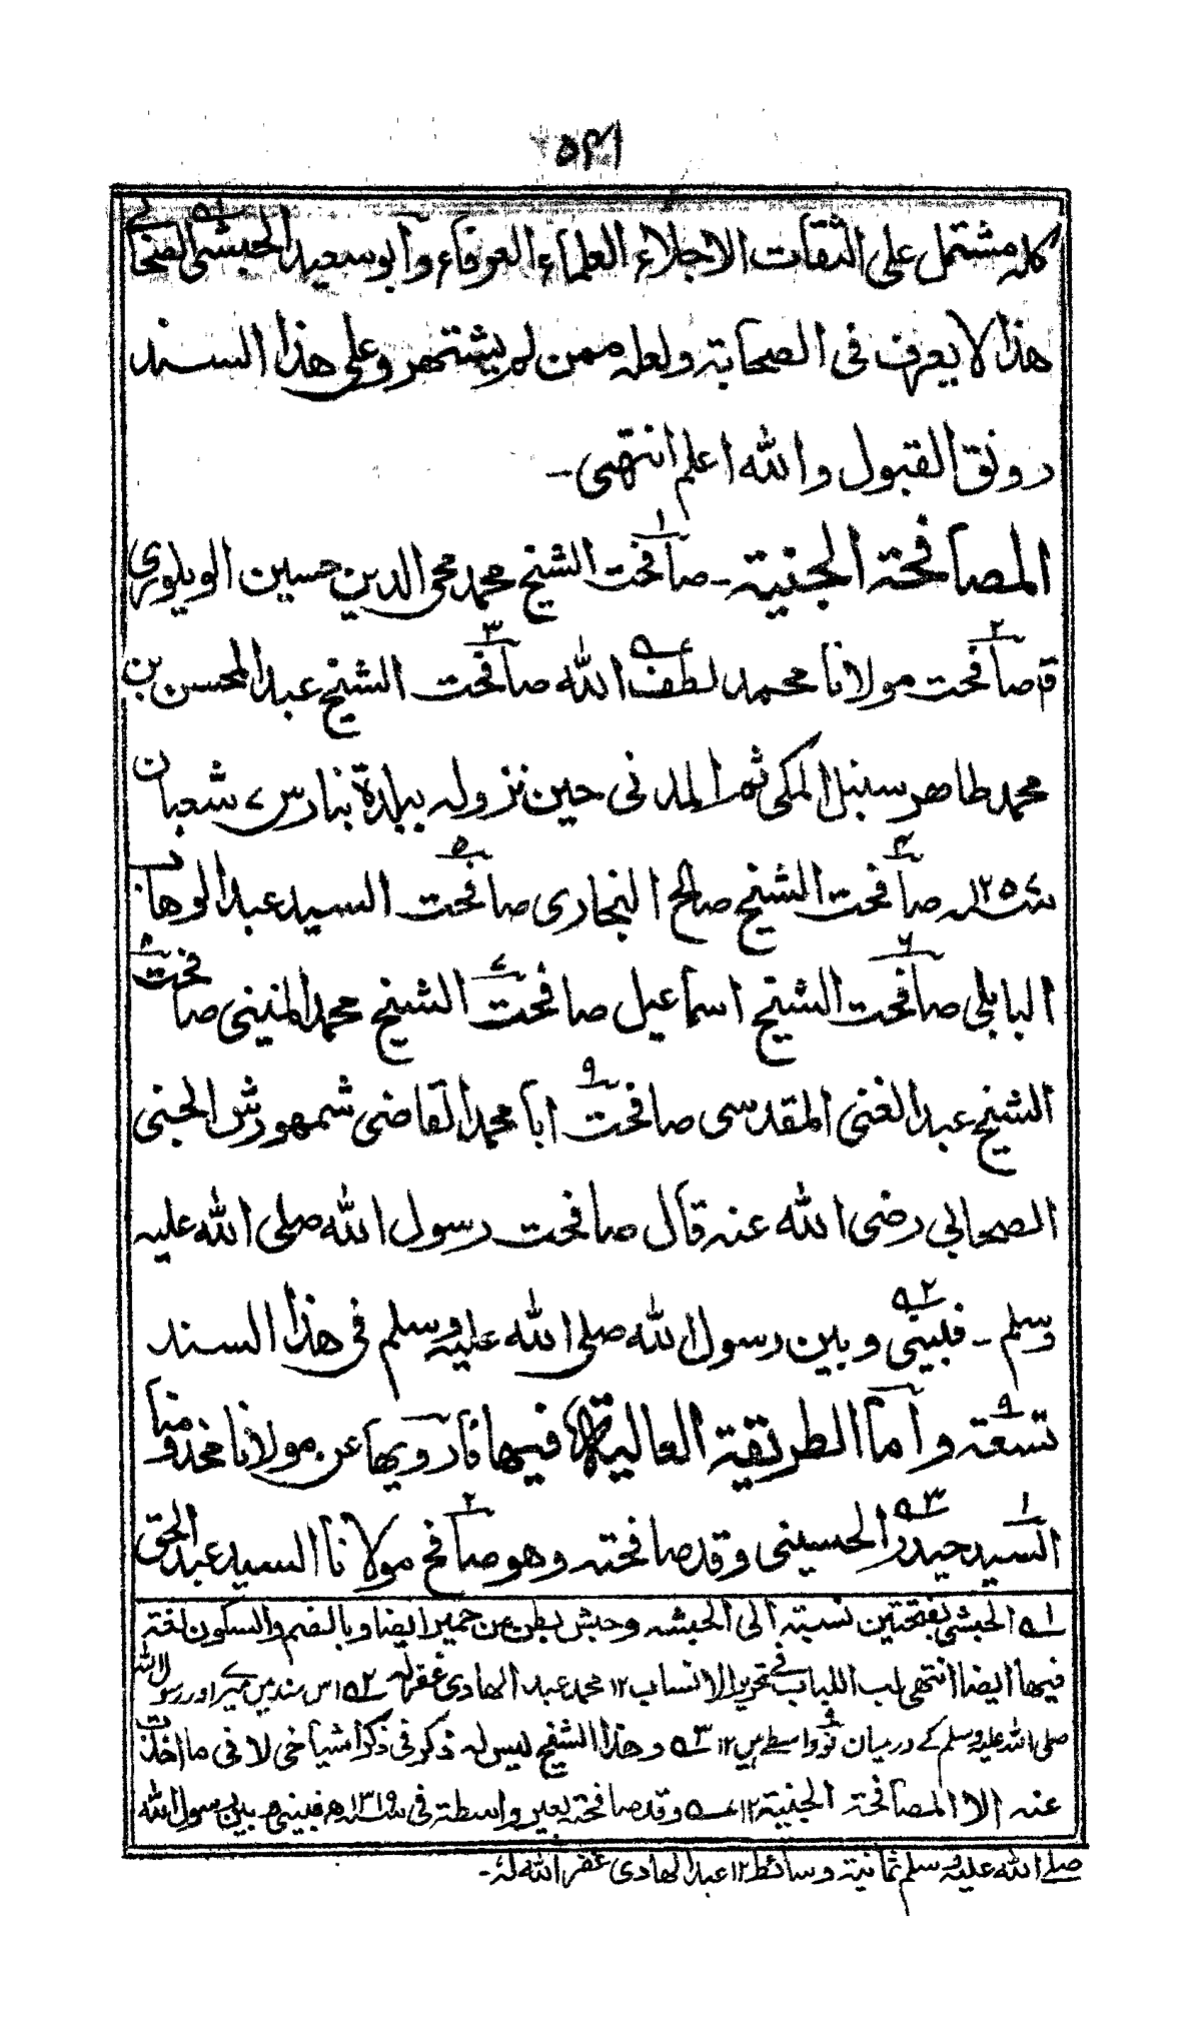 ٥٣١
كله مشتمل على الثقات الاجلاء العلماء العرفاء وابو سعيد الحبشى الصحابي
هذا لا يعرف فى الصحابة ولعله ممن لم يشتهر وعلى هذا السند
رونق القبول والله اعلم انتهى ـ
المصافحة الجنية ـ صافحت الشيخ محمد محى الدين حسين الويلورى
ق صافحت مولانا محمد لطف الله صافحت الشيخ عبد المحسن بن
محمد طاهر سنبل المكى ثم المدنى حين نزوله ببلدة بنارس ٧ شعبان
سنه ١٢٥٧ صافحت الشيخ صالح البخارى صافحت السيد عبد الوهاب
البابلى صافحت الشيخ اسماعيل صافحت الشيخ محمد المنينى صافحت
الشيخ عبد الغنى المقدسى صافحت ابا محمد القاضى شمهورش الجنى
الصحابى رضى الله عنه قال صافحت رسول الله صلى الله عليه
وسلم ـ فبينى وبين رسول الله صلى الله عليه وسلم فى هذا السند
تسعة واما الطريقة العالية فيها فارويها عن مولانا مخدومنا
السيد حيدر الحسينى وقد صافحته وهو صافح مولانا السيد عبد الحق
١ه الحبشى بفتحتين نسبة الى الحبشه وحبش بطن من حمير ايضا وبالضم والسكون لغة
فيها ايضا انتهى لب اللباب فى تحرير الانساب ١٢ محمد عبد الهادى غفر له ٢ه اس سند میں میرے اور رسول الله
صلى الله عليه وسلم کے درمیان نو واسطے ہیں ١٢ ٣ه وهذا الشيخ ليس له ذكر فى ذكر اشياخى لانى ما اخذت
عنه الا المصافحة الجنية ١٢ ٤ه وقد صافحته بغير واسطة فى سنه ١٣١٩ه فبينى وبين رسول الله
صلى الله عليه وسلم ثمانية وسائط ١٢ عبد الهادى غفر الله له ـ